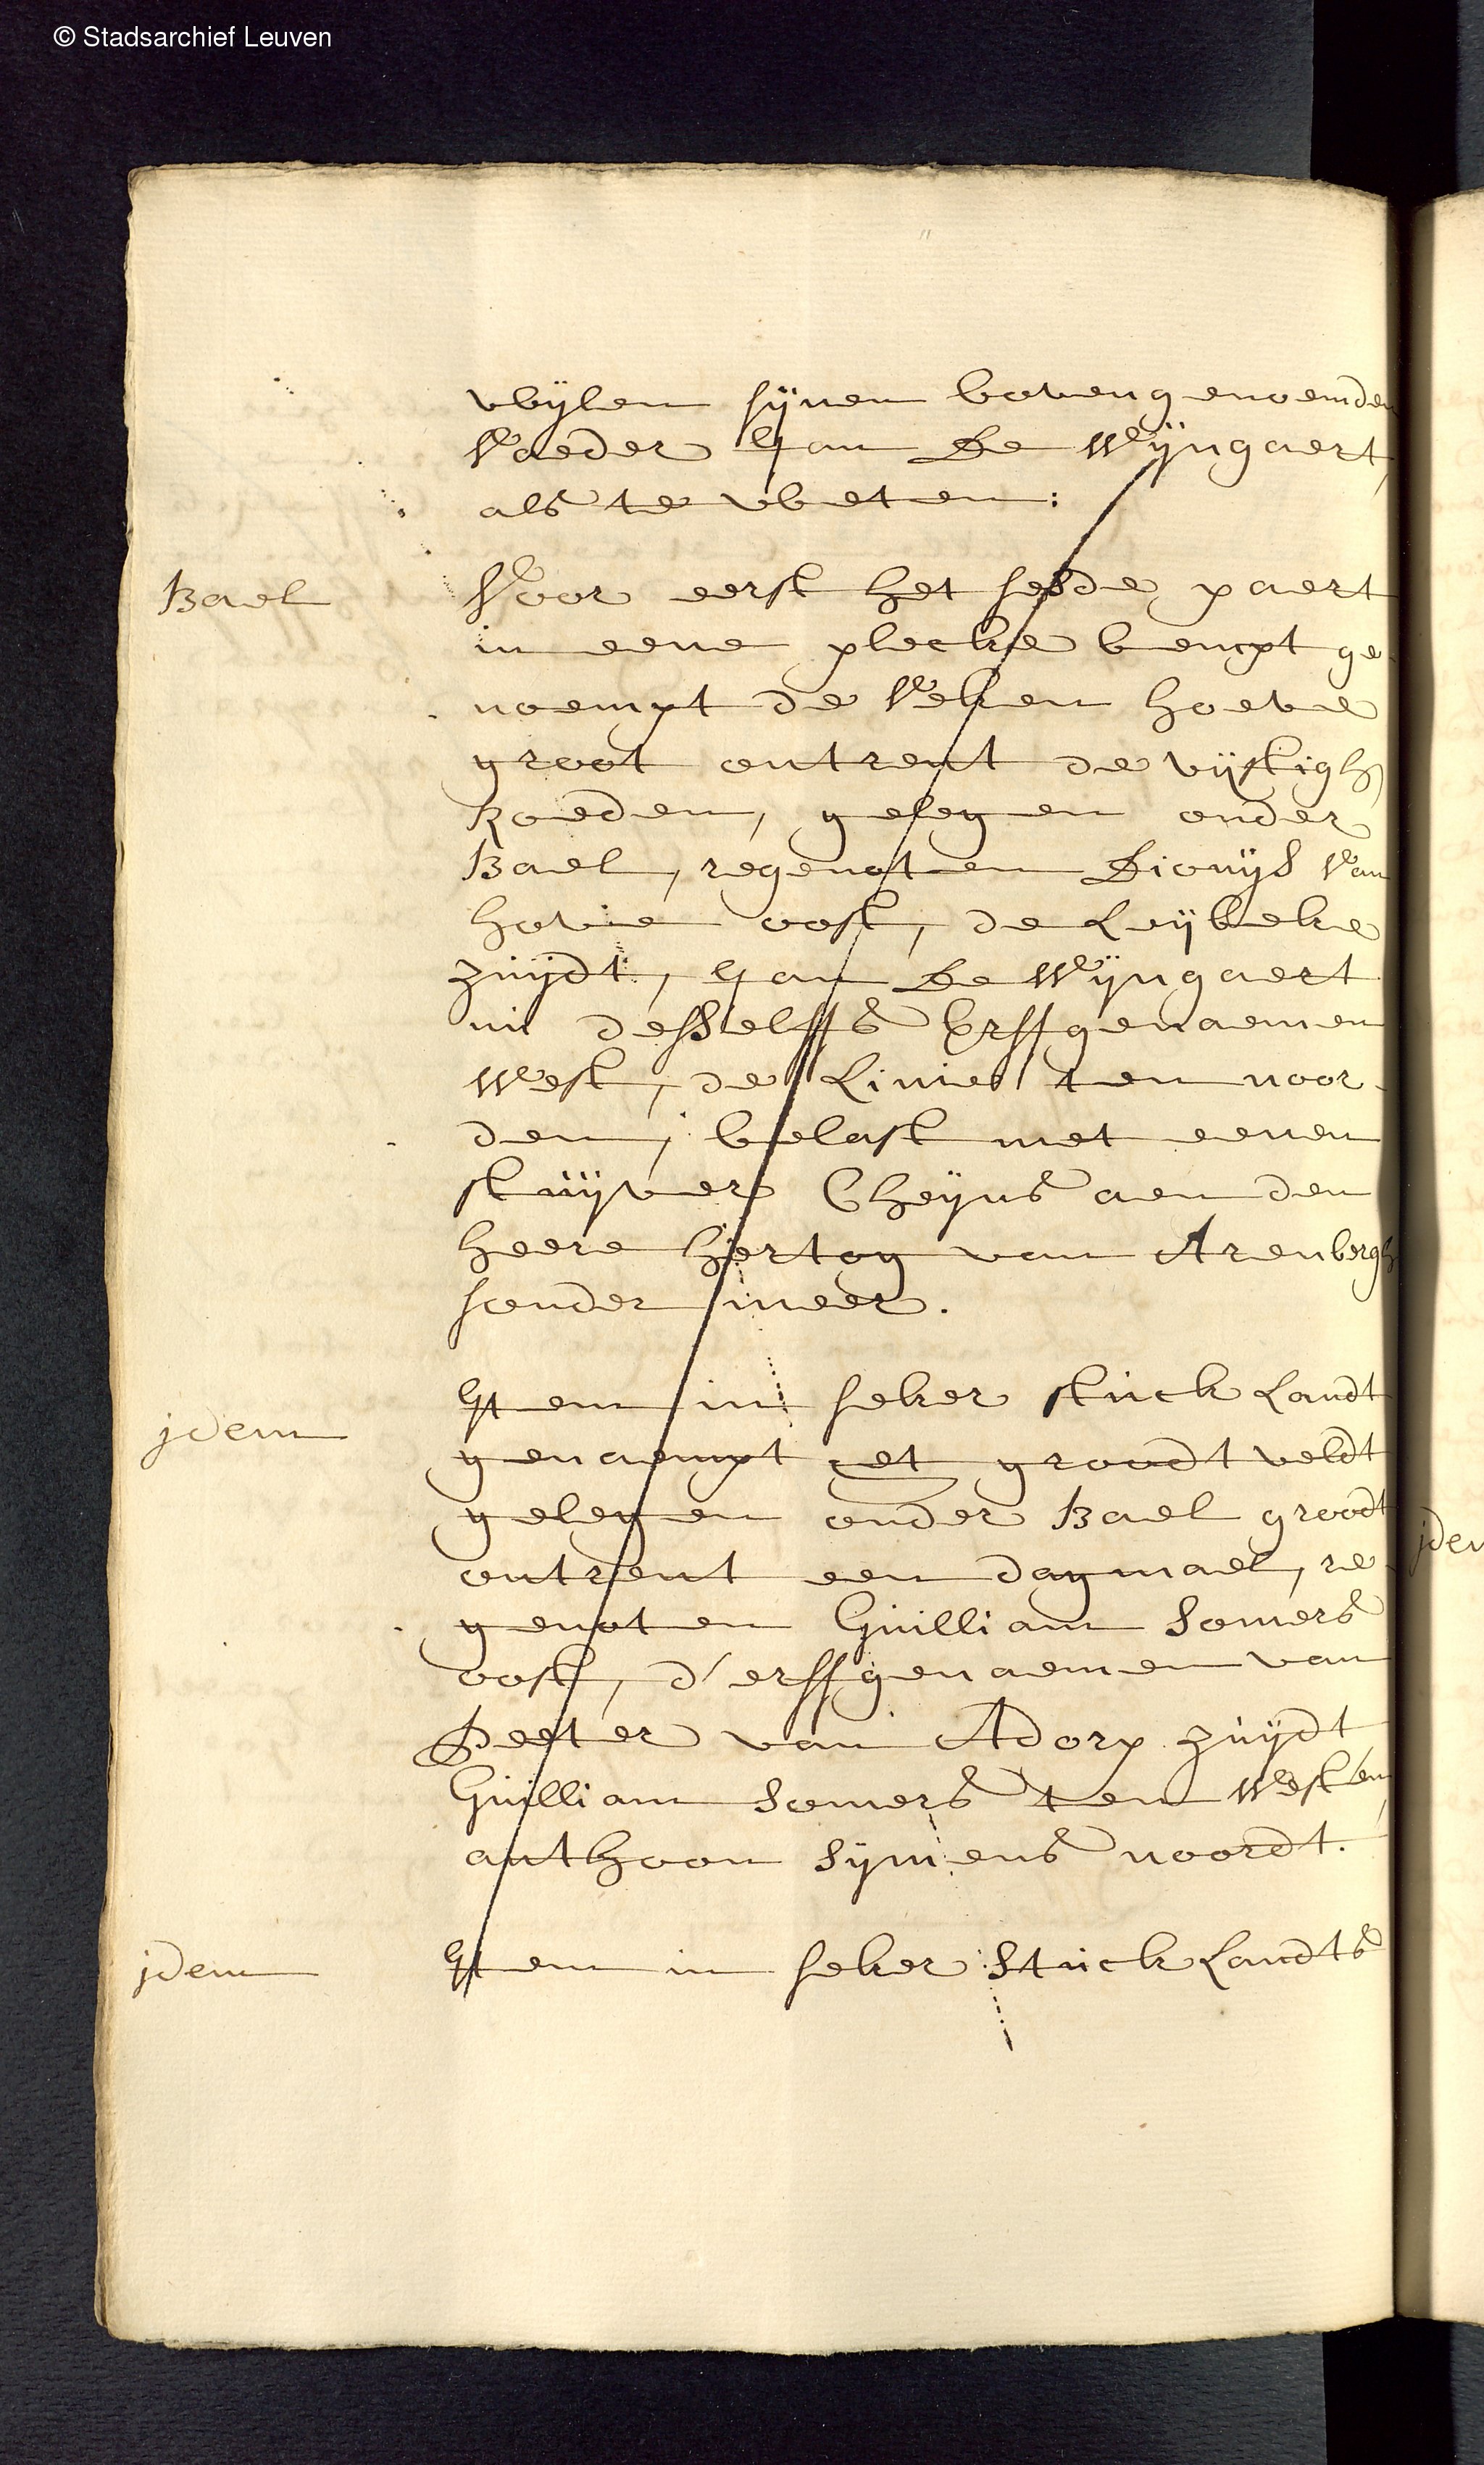 © Stadsarchief Leuven
wylen synen bovengenoemden
Vaeder Jan De Wyngaert,
als te weten:
Bael
Voor eerst het sesde paert
in eene plecke bempt ge-
noempt de Veken hoeve
groot ontrent de vystigh
Roeden, gelegen onder
Bael, regenoten Dionys Van
hove oost, de Leybeke
zuydt, Jan De Wyngaert
nu desselffs Erffgenaemen
West, de Linie ten noor-
den, belast met eenen
stuyver Cheyns aen den
heere hertog van Arenbergh
sonder meer.
jdem
Item in seker stuck Landt
genaempt et groodt veldt
gelegen onder Bael groodt
ontrent een dagmael, re-
genoten Guilliam Somers
oost, d'erffgenaemen van
Peeter van Adorp zuydt
Guilliam Somers ten Westen,
anthoon Symens noordt.
jdem
Item in seker Stuck Landts